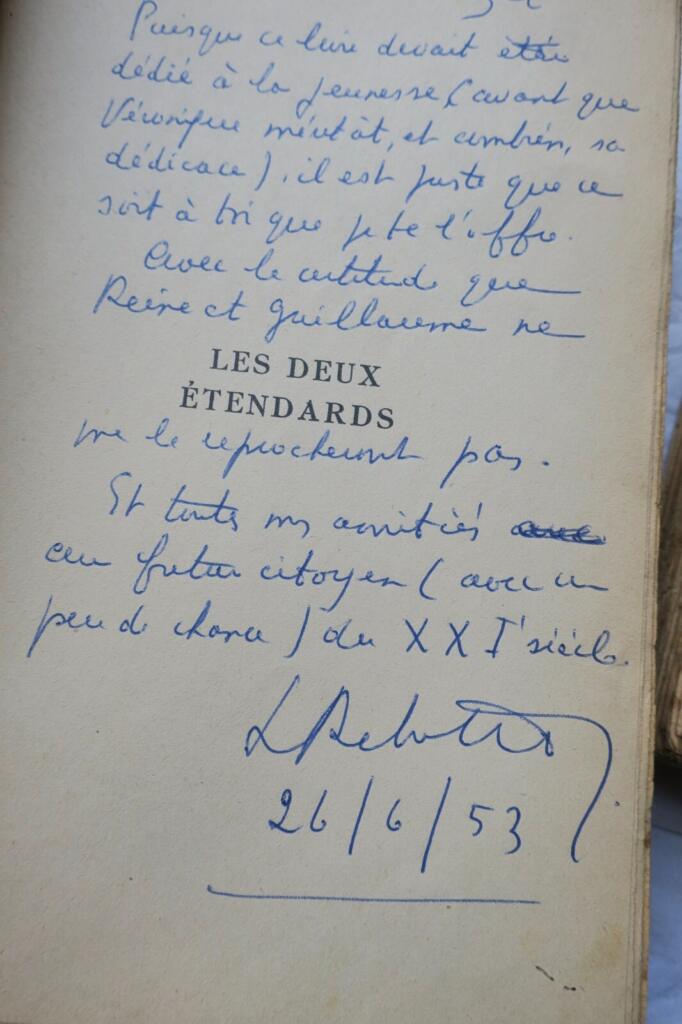 Puisque ce livre devait être
dédié à la jeunesse (avant que
Véronique méritât, et combien, sa
dédicace), il est juste que ce
soit à toi que je te l'offre.
Avec la certitude que
Reine et Guillaume ne
LES DEUX
ÉTENDARDS
me le reprocheront pas.
Et toutes mes amitiés
au futur citoyen (avec un
peu de chance) du XXIe siècle.
L Rebatet
26/6/53